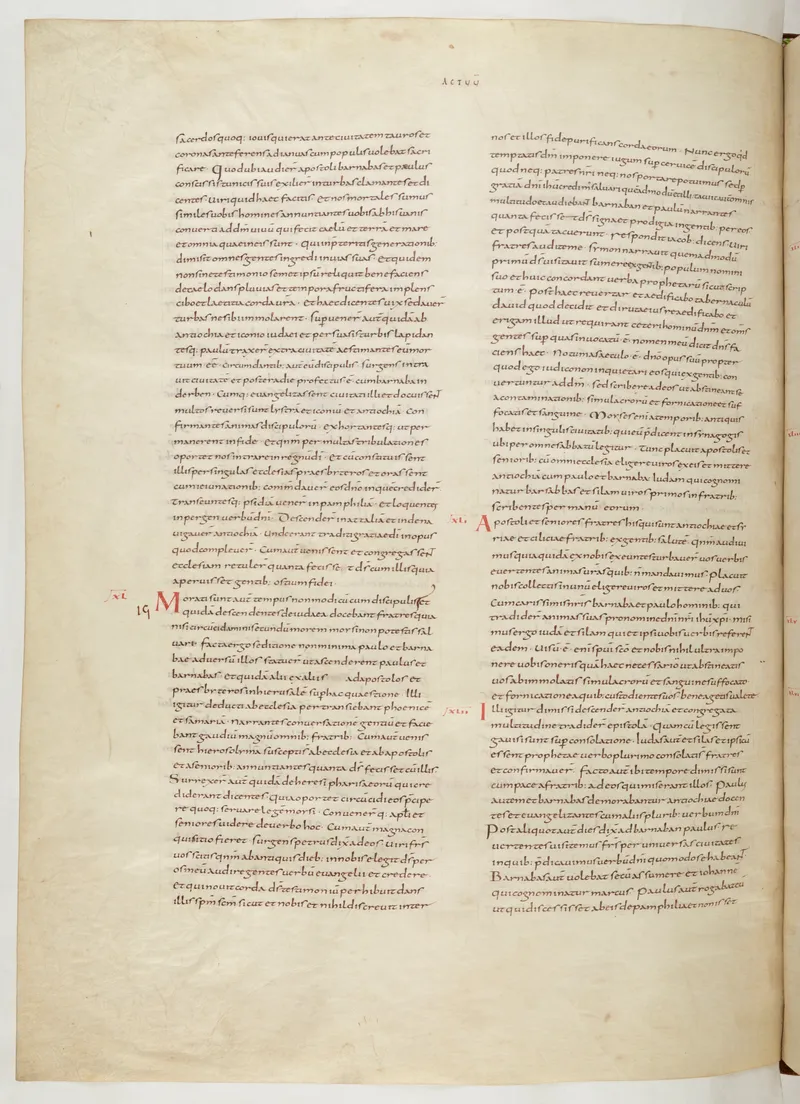 ACTUŪ
sacerdosquoq: iouisquieratanteciuitatemtaurosеt
coronasanteferensadianuascumpopulisuolebatsacri
ficare. Quodubiaudier apostolibarnabasetpaulus
consissistunicissuisexilier inturbasclamantesetdi
centes uiriquidhaec facitis etnosmortalessumus
similesuobishominesannuntiantesuobisabhisuanis
conuertiaddm̄uiuū quifecit caelū etterrā etmare
etomniaquaeineissunt. quinpteritisgenerationib:
dimisitomnesgentesingrediinuiassuas. etquidem
nonsinetestimoniosemetipsūreliquitbenefaciens
decaelodanspluuiasettemporafructiferaimplens
ciboetlaetitiacordaura. ethaecdicentesuixsedauer
turbasnesibiimmolarent. supuener aut̄quidāab
antiochiaeticonioiudaei etpersuasisturbislapidan
tesq: paulūtraxer extraciuitatē aestimanteseūmor
tuum eē. circumdantib: aut̄eūdiscipulis surgensintra
uitciuitatē etposteradieprofectusē cumbarnabain
derben. Cumq: euangelizassent ciuitatiilli etdocuissent
multosreuersisuntlystrā eticoniū etantiochiā con
firmantesanimasdiscipulorū exhortantesq: utper
manerentinfide etqnm̄permultastribulationes
oportetnosintrareinregnūdī. etcūconstituissent
illispersingulasecclesiaspraesbyterosetorassent
cumieiunationib: commdauer eosdn̄oinquēcredider
transeuntesq: psidiā uener inpamphiliā. etloquentes
inpergenuerbūdn̄i. Descender inattaliā etindena
uigauerantiochiā. Undeeranttraditigratiaedīinopus
quodcompleuer. Cumaut̄uenissent etcongregassent
ecclesiam retuler quantafecissē t dscumillisquia
aperuisset gentib: ostiumfidei
XL
Moratisuntaut̄tempusnonmodicūcumdiscipulis Et
quidādescendentesdeiudaeadocebantfratresquia
nisicircūcidaminisecundūmoremmorsinonpotestissal
uari. factaergoseditionenonminimapauloetbarna
baeaduersūillosstatuer utascenderentpauluset
barnabas etquidāaliiexaliis adapostoloset
praesbyterosinhierusalē suphacquaestione. Illi
igiturdeductiabecclesia pertransiebantphoenicē
etsamariā. narrantesconuersationēgentiū etfacie
bantgaudiūmagnūomnib: fratrib: Cumaut̄uenis
senthierosolymasusceptisabecclesia etabapostolis
etaseniorib: annuntiantesquanta dsfecissetcūillis
Surrexer aut̄quidādeheresipharisaeorūquicre
diderantdicentesquiaoportetcircūcidieospcipe
requoq: seruarelegēmoysi. Conuenerq: apliet
senioresuideredeuerbohoc. Cumaut̄magnacon
quisitiofieret surgenspetrusdixitadeos Uirifrs
uosscitisqnm̄abantiquisdieb: innobiselegitdsper
osmeūaudiregentesuerbūeuangelii etcredere.
etquinouitcordadstestimoniūperhibuitdans
illisspm̄scm̄sicutetnobisetnihildiscreuitinter
nosetillosfidepurificanscordaeorum. Nuncergoqd
temptatisdm̄imponereiugumsupceruicēdiscipulorū
quodneq: patresnrineq: nosportarepotuimus sedp
gratiādn̄iihucredimsaluariquēadmodūetilli tacuitautomnis
multitudoetaudiebantbarnabanetpaulūnarrantes
quantafecisset dssignaetprodigiaingentib: pereos
etpostquātacuerunt. responditiacob: dicens Uiri
fratresauditeme. symonnarrauitquemadmodū
primūdsuisitauitsumereexgentib: populumnomini
suoethuicconcordantuerbaprophetarūsicutscrip
tumē. posthaecreuertar etaedificabotabernaculū
dauidquoddecidit etdirutaeiusreaedificabo et
erigamillud utrequirantceterihominūdn̄metoms
gentes supquasinuocatūē nomenmeūdicitdn̄sfa
cienshaec. Notumasaeculoē dn̄oopussuūpropter
quodegoiudicononinquietarieosquiexgentib: con
uertunturaddm̄. sedscribereadeosutabstineantsē
acontaminationib: simulacrorū etfornicationeetsuf
focatisetsanguine. Moysesenimatemporib: antiquis
habetinsinguliscitatib: quieūpdicentinsynagogis
ubiperomnesabbatūlegitur. Tuncplacuitapostoliset
seniorib: cūomniecclesia eligereuirosexeisetmittere
antiochiācumpauloetbarnaba. Iudamquicogomi
naturbarsabbasetsilamuirosprimosinfratrib:
scribentespermanū eorum.
XLI
Apostolietseniores fratreshisquisuntantiochiaeetsy
riaeetciliciaefratrib: exgentib: salutē. qnm̄audiui
musquiaquidāexnobisexeuntesturbauer uosuerbis
euertentesanimasurasquib: nmandauimus placuit
nobiscollectisinunūeligereuirosetmittereaduos
Cumcarissimisnr̄isbarnabaetpaulohominib: qui
tradider animassuaspronominedn̄inr̄iihuxpi. misi
musergoiudāetsilam etipsiuobisuerbisreferent
eadem. Uisūē. enīspuiscō etnobisnihilultraimpo
nereuobisonerisquāhaecnecessario utabstineatis
uosabimmolatissimulacrorū etsanguinesuffocato
etfornicatione aquib: custodientesuosbeneagetisualete
XLII
Illiigiturdimissidescender antiochiāetcongregata
multitudinetradider epistolā. Quamcūlegissent
gauisisuntsupconsolatione. Iudasaut̄etsilasetipsicū
essentprophetaeuerboplurimoconsolatisfratres
etconfirmauer. factoaut̄ibitemporedimissisunt
cumpaceafratrib: adeosquimiserantillos. Paulus
autemetbarnabasdemorabanturantiochiaedocen
tesetevangelizantescumaliisplurib: uerbumdn̄i.
Postaliquotaut̄diesdixitadbarnabanpaulusre
uertentesuisitemusfrs peruniuersasciuitates
inquib: pdicauimusuerbūdn̄iquomodosehabeant
Barnabasaut̄ uolebat secūassumere etiohannē
quicognominaturmarcus paulusaut̄rogabateū
utquidiscessissetabeisdepamphiliaetnonisset